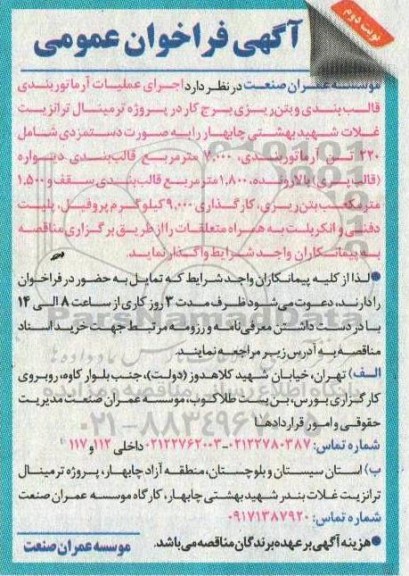 نوبت دوم
آگهی فراخوان عمومی
موسسه عمران صنعت در نظر دارد اجرای عملیات آرماتوربندی
قالب بندی و بتن ریزی برج کار در پروژه ترمینال ترانزیت
غلات شهید بهشتی چابهار را به صورت دستمزدی شامل
۲۲۰ تن آرماتوربندی، ۷,۰۰۰ مترمربع قالب‌بندی دیواره
(قالب لغزان) بالارونده، ۱,۸۰۰ مترمربع قالب‌بندی سقف و ۱,۵۰۰
مترمکعب بتن ریزی، کارگذاری ۹,۰۰۰ کیلوگرم پروفیل، پلیت
دفنی و انکرپلیت به همراه متعلقات را از طریق برگزاری مناقصه
به پیمانکاران واجد شرایط واگذار نماید.
●لذا از کلیه پیمانکاران واجد شرایط که تمایل به حضور در فراخوان
را دارند، دعوت می‌شود ظرف مدت ۳ روز کاری از ساعت ۸ الی ۱۴
با در دست داشتن معرفی نامه و رزومه مرتبط جهت خرید اسناد
مناقصه به آدرس زیر مراجعه نمایند.
الف) تهران، خیابان شهید کلاهدوز (دولت)، جنب بلوار کاوه، روبروی
کارگزاری بورس، بن بست طلاکوب، موسسه عمران صنعت مدیریت
حقوقی و امور قراردادها
شماره تماس: ۰۲۱۲۲۷۸۰۳۸۷-۰۲۱۲۲۷۶۲۰۰۳ داخلی ۱۱۲ و ۱۱۷
ب) استان سیستان و بلوچستان، منطقه آزاد چابهار، پروژه ترمینال
ترانزیت غلات بندر شهید بهشتی چابهار، کارگاه موسسه عمران صنعت
شماره تماس: ۰۹۱۷۱۳۸۷۹۲۰
●هزینه آگهی بر عهده برندگان مناقصه می‌باشد.
موسسه عمران صنعت
ParsNamadData
۰۲۱-۸۸۳۴۹۶۷۰